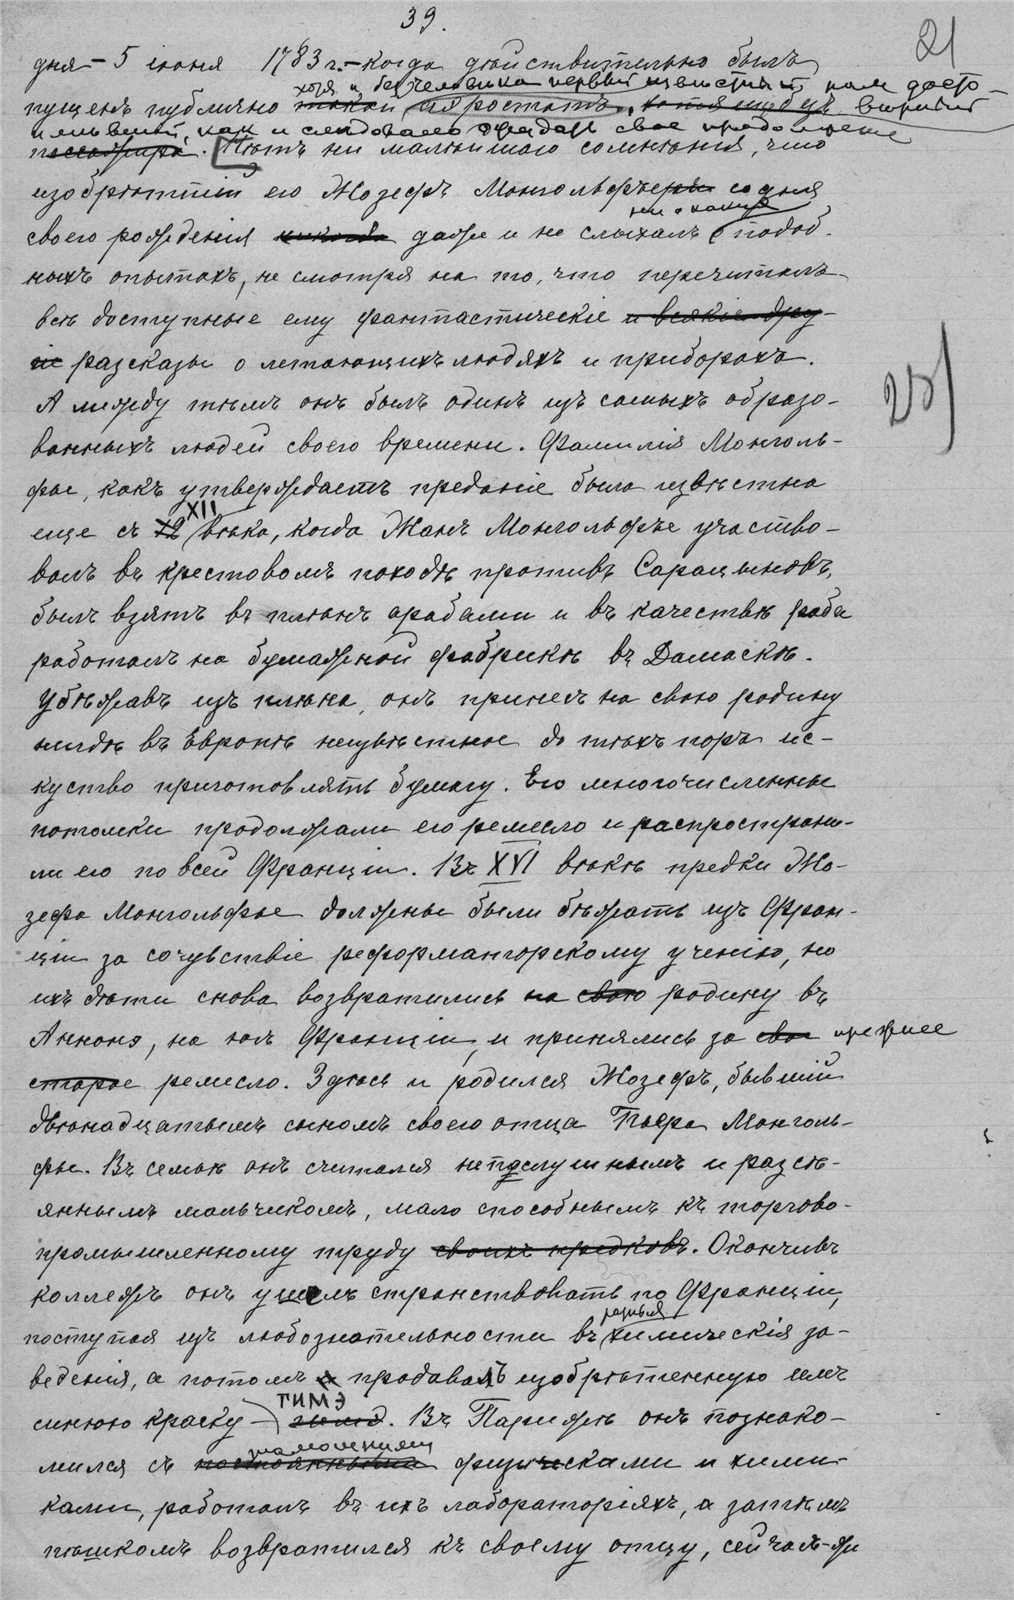 39.
21
дня – 5 іюня 1783 г. – когда дѣйствительно былъ
хотя и безъ человѣка первый извѣстный намъ досто-
пущенъ публично такой аэростатъ,
и мѣшкъ, какъ и слѣдовало свое
пассажира. Нѣтъ ни малѣйшаго сомнѣнія, что
изобрѣтшій его Жозефъ Монгольфье со дня
ни о какихъ
своего рожденія никогда даже и не слыхалъ о подоб-
ныхъ опытахъ, не смотря на то, что перечиталъ
всѣ доступные ему фантастическіе и всякіе дру-
гіе разсказы о летающихъ людяхъ и приборахъ.
25)
А между тѣмъ онъ былъ одинъ изъ самыхъ образо-
ванныхъ людей своего времени. Фамилія Монголь-
фье, какъ утверждаетъ преданіе была извѣстна
XII
еще съ 12 вѣка, когда Жанъ Монгольфье участво-
валъ въ крестовомъ походѣ противъ Сарацыновъ,
былъ взятъ въ плѣнъ арабами и въ качествѣ раба
работалъ на бумажной фабрикѣ въ Дамаскѣ.
Убѣжавъ изъ плѣна, онъ принесъ на свою родину
нигдѣ въ Европѣ неизвѣстное до тѣхъ поръ ис-
куство приготовлять бумагу. Его многочисленные
потомки продолжали его ремесло и распространи-
ли его по всей Франціи. Въ XVI вѣкѣ предки Жо-
зефа Монгольфье должны были бѣжать изъ Фран-
ціи за сочувствіе реформаторскому ученію, но
ихъ дѣти снова возвратились на свою родину въ
Аннонэ, на югѣ Франціи, и принялись за свое прежнее
старое ремесло. Здѣсь и родился Жозефъ, бывшій
двѣнадцатымъ сыномъ своего отца Пьера Монголь-
фье. Въ семьѣ онъ считался непослушнымъ и разсѣ-
яннымъ мальчикомъ, мало способнымъ къ торгово-
промышленному труду своихъ предковъ. Окончивъ
коллежъ онъ ушелъ странствовать по Франціи,
разныя
поступая изъ любознательности въ химическія за-
веденія, а потомъ и продавалъ изобрѣтенную имъ
ТИМЭ
синюю краску – тимэ. Въ Парижѣ онъ познако-
тамошними
мился съ постоянными физиками и хими-
ками, работалъ въ ихъ лабораторіяхъ, а затѣмъ
пѣшкомъ возвратился къ своему отцу, сейчасъ-же